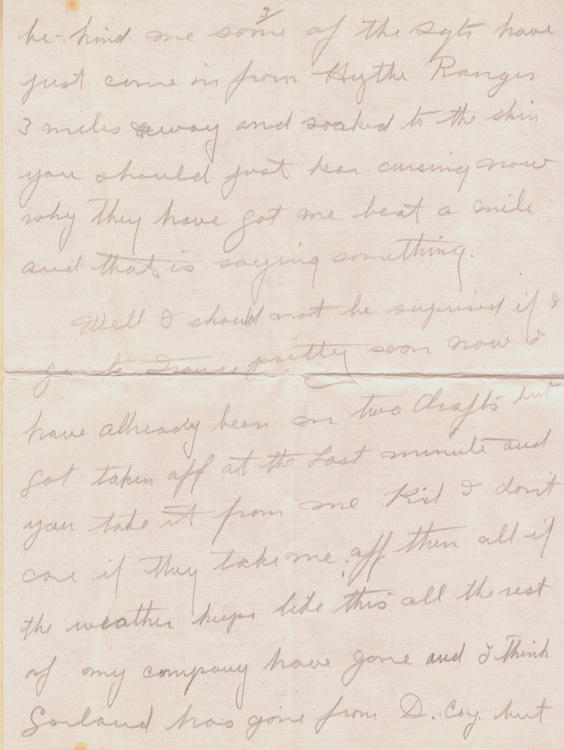 3
be-hind me some of the sgts have
just come in from Hythe Ranges
3 miles away and soaked to the skin
you should just hear cursing now
why they have got me beat a mile
and that is saying something.
Well I should not be suprised if I
go to France pretty soon now I
have allready been on two drafts but
got taken off at the last minute and
you take it from me Kid I don't
care if they take me off them all if
the weather keeps like this all the rest
of my company have gone and I think
Garland has gone from D. Coy. but